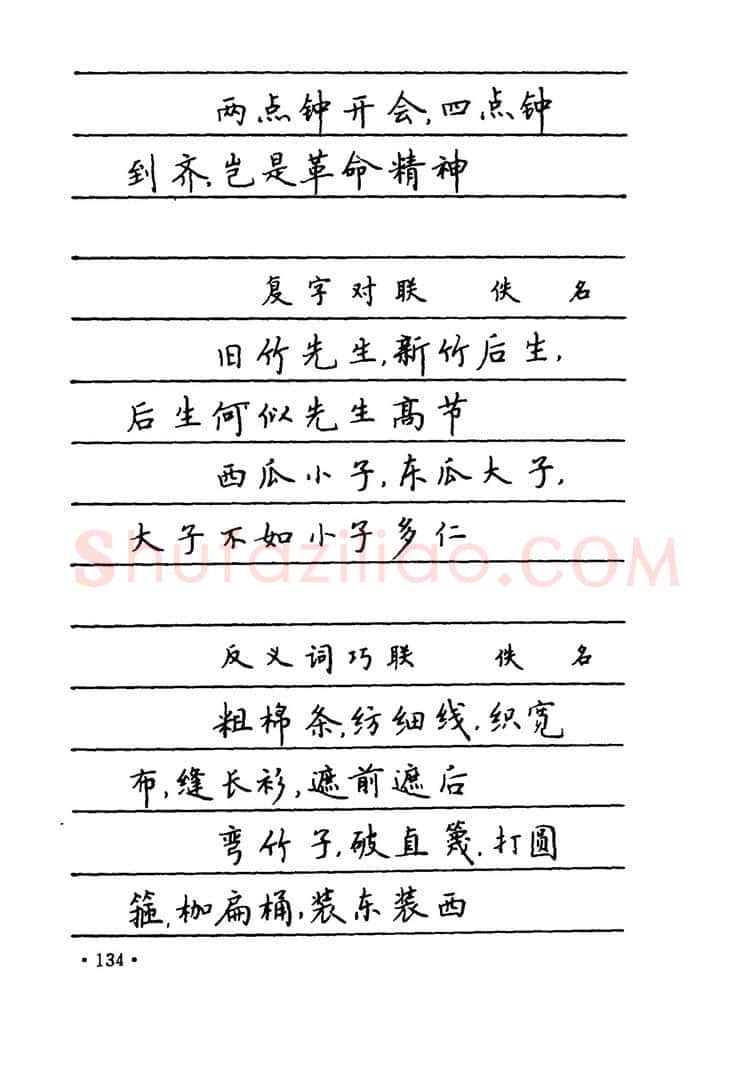 两点钟开会,四点钟
到齐,岂是革命精神
复字对联 佚 名
旧竹先生,新竹后生,
后生何似先生高节
西瓜小子,东瓜大子,
大子不如小子多仁
shufaziliao.COM
反义词巧联 佚 名
粗棉条,纺细线,织宽
布,缝长衫,遮前遮后
弯竹子,破直篾,打圆
箍,枷扁桶,装东装西
·134·